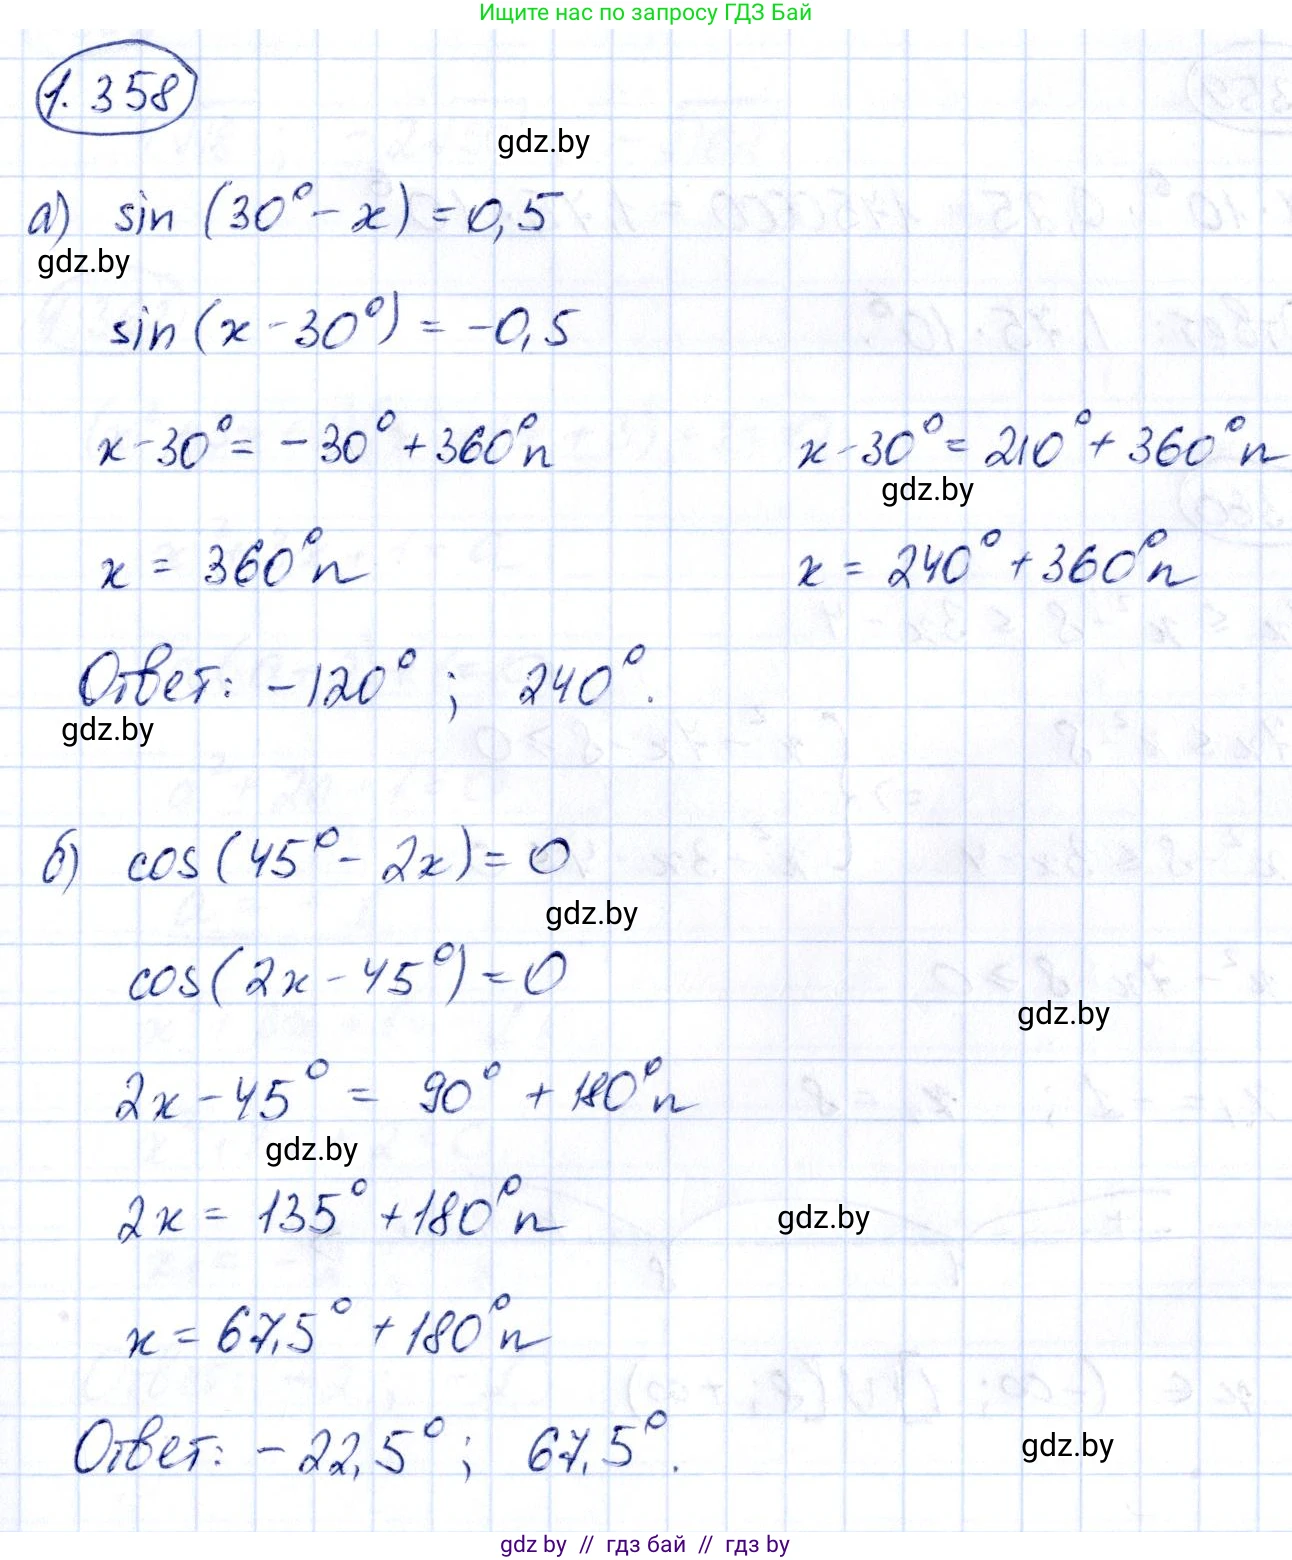 Ищите нас по запросу ГДЗ Бай
1.358
gdz.by
а) sin (30° - x) = 0,5
gdz.by
sin (x - 30°) = -0,5
x - 30° = -30° + 360°n
x - 30° = 210° + 360°n
gdz.by
x = 360°n
x = 240° + 360°n
Ответ: -120° ; 240°.
gdz.by
б) cos (45° - 2x) = 0
gdz.by
cos (2x - 45°) = 0
gdz.by
2x - 45° = 90° + 180°n
gdz.by
2x = 135° + 180°n
gdz.by
x = 67,5° + 180°n
Ответ: -22,5° ; 67,5°.
gdz.by
gdz by // гдз бай // gdz by